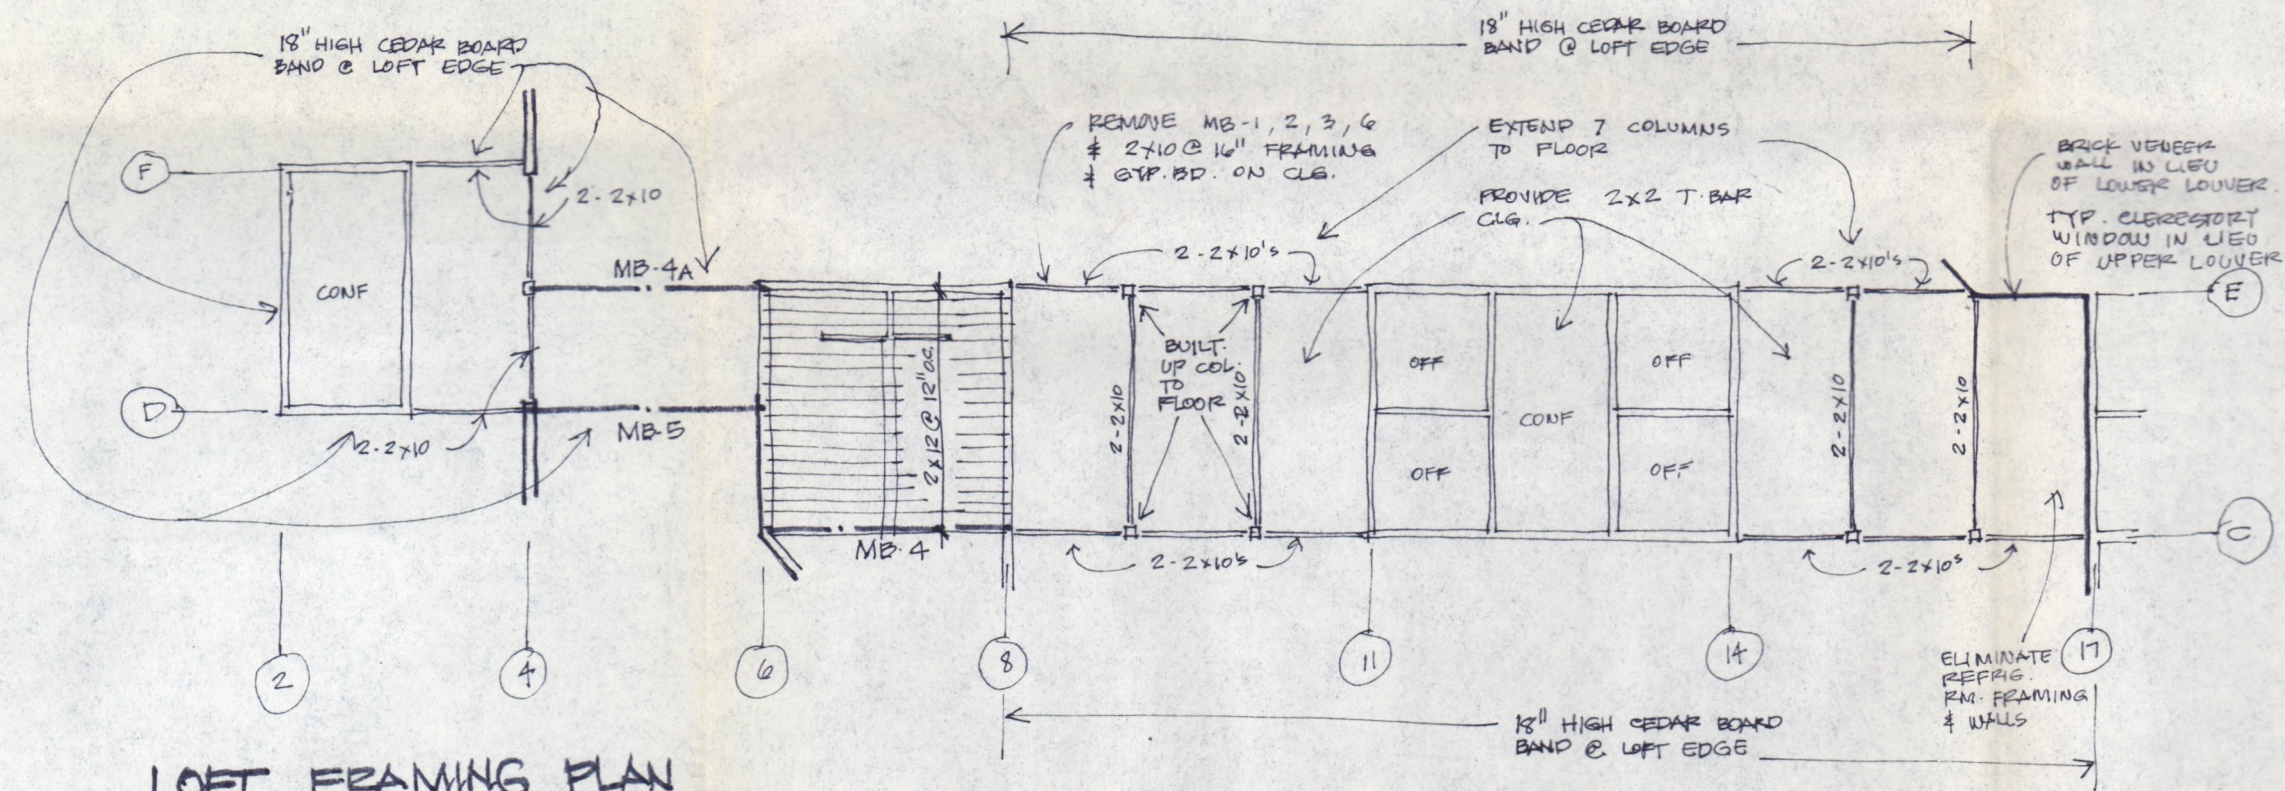 18" HIGH CEDAR BOARD
BAND @ LOFT EDGE
18" HIGH CEDAR BOARD
BAND @ LOFT EDGE
REMOVE MB-1, 2, 3, 6
& 2X10 @ 16" FRAMING
& GYP. BD. ON CLG.
EXTEND 7 COLUMNS
TO FLOOR
PROVIDE 2X2 T-BAR
CLG.
BRICK VENEER
WALL IN LIEU
OF LOWER LOUVER.
TYP. CLERESTORY
WINDOW IN LIEU
OF UPPER LOUVER
F
2-2X10
2-2X10's
2-2X10's
MB-4A
CONF
E
BUILT-
UP COL.
TO
FLOOR
2X12 @ 12" O.C.
2-2X10
2-2X10
OFF
OFF
CONF
OFF
OFF
2-2X10
2-2X10
D
MB-5
2-2X10
MB-4
2-2X10's
2-2X10's
C
2
4
6
8
11
14
17
ELIMINATE
REFRIG.
RM. FRAMING
& WALLS
18" HIGH CEDAR BOARD
BAND @ LOFT EDGE
LOFT FRAMING PLAN